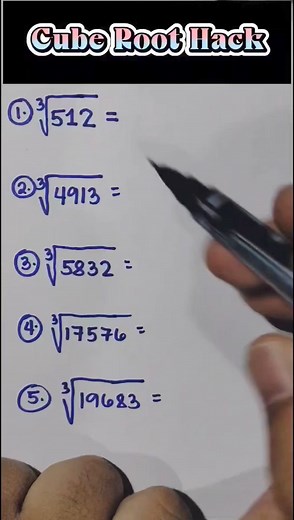 Cube Root Hack
1. ∛512 =
2. ∛4913 =
3. ∛5832 =
4. ∛17576 =
5. ∛19683 =